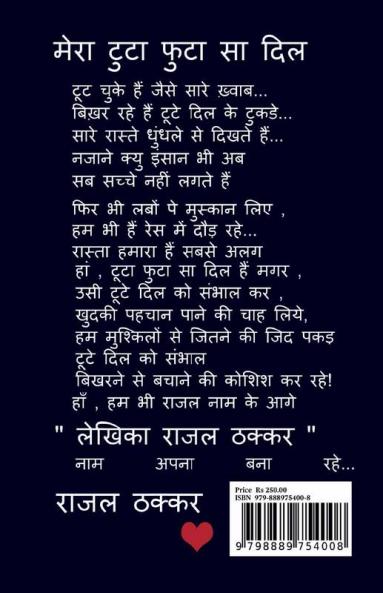 मेरा टुटा फुटा सा दिल
टूट चुके हैं जैसे सारे ख़्वाब...
बिख़र रहे हैं टूटे दिल के टुकडे...
सारे रास्ते धुंधले से दिखते हैं...
नजाने क्यु इंसान भी अब
सब सच्चे नहीं लगते हैं
फिर भी लबों पे मुस्कान लिए ,
हम भी हैं रेस में दौड़ रहे...
रास्ता हमारा हैं सबसे अलग
हां , टूटा फुटा सा दिल हैं मगर ,
उसी टूटे दिल को संभाल कर ,
खुदकी पहचान पाने की चाह लिये,
हम मुश्किलों से जितने की जिद पकड़
टूटे दिल को संभाल
बिखरने से बचाने की कोशिश कर रहे!
हाँ , हम भी राजल नाम के आगे
" लेखिका राजल ठक्कर "
नाम अपना बना रहे...
राजल ठक्कर
Price Rs 250.00
ISBN 979-888975400-8
9 798889 754008